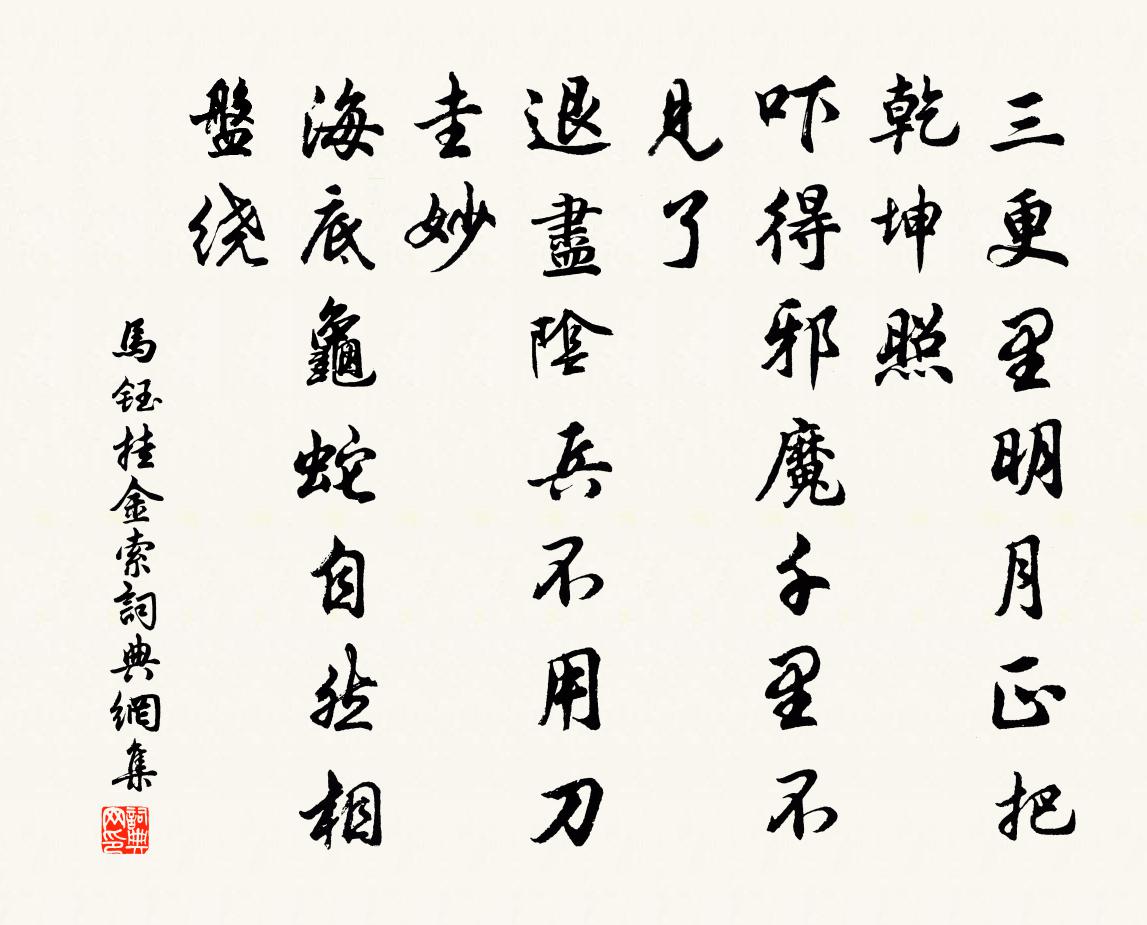 三更里明月正把
乾坤照
吓得邪魔千里不
見了
退盡陰兵不用刀
圭妙
海底龜蛇自然相
盤绕
馬鈺挂金索詞典網集
詞典
网印